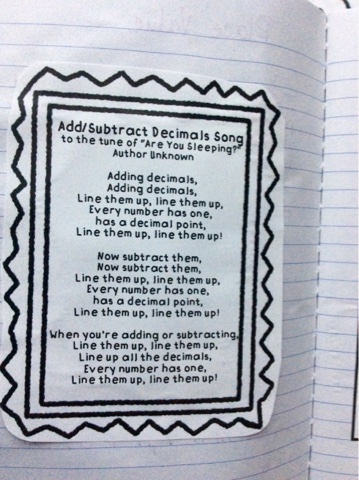 Add/Subtract Decimals Song
to the tune of "Are You Sleeping?"
Author Unknown
Adding decimals,
Adding decimals,
Line them up, line them up,
Every number has one,
has a decimal point,
Line them up, line them up!
Now subtract them,
Now subtract them,
Line them up, line them up,
Every number has one,
has a decimal point,
Line them up, line them up!
When you're adding or subtracting,
Line them up, line them up,
Line up all the decimals,
Every number has one,
Line them up, line them up!